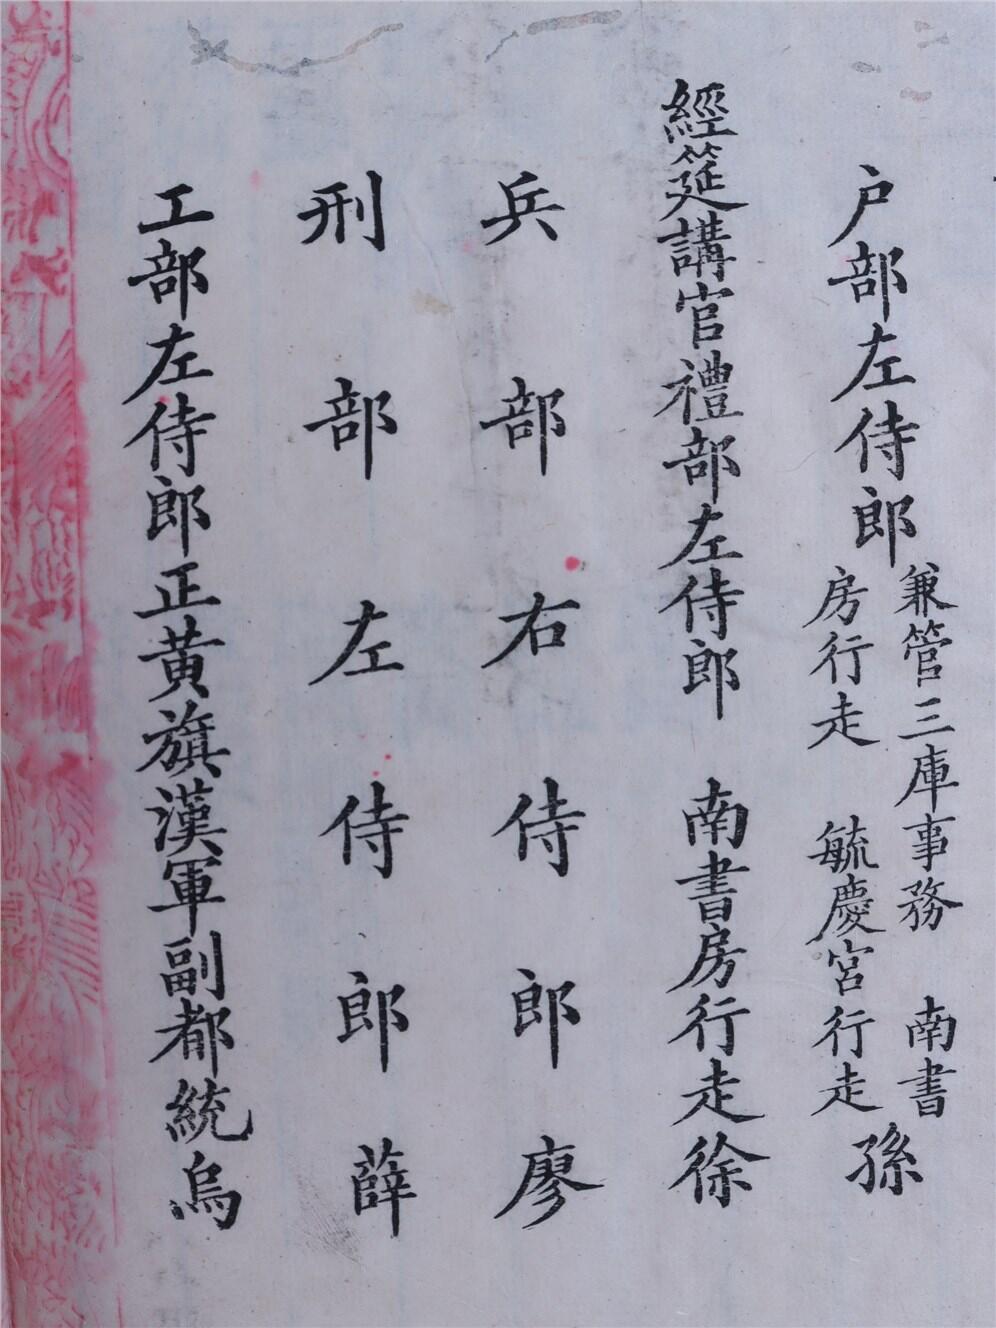 户部左侍郎
兼管三庫事務 南書
房行走 毓慶宮行走
孫
經筵講官禮部左侍郎 南書房行走徐
兵部右侍郎廖
刑部左侍郎薛
工部左侍郎正黃旗漢軍副都統烏